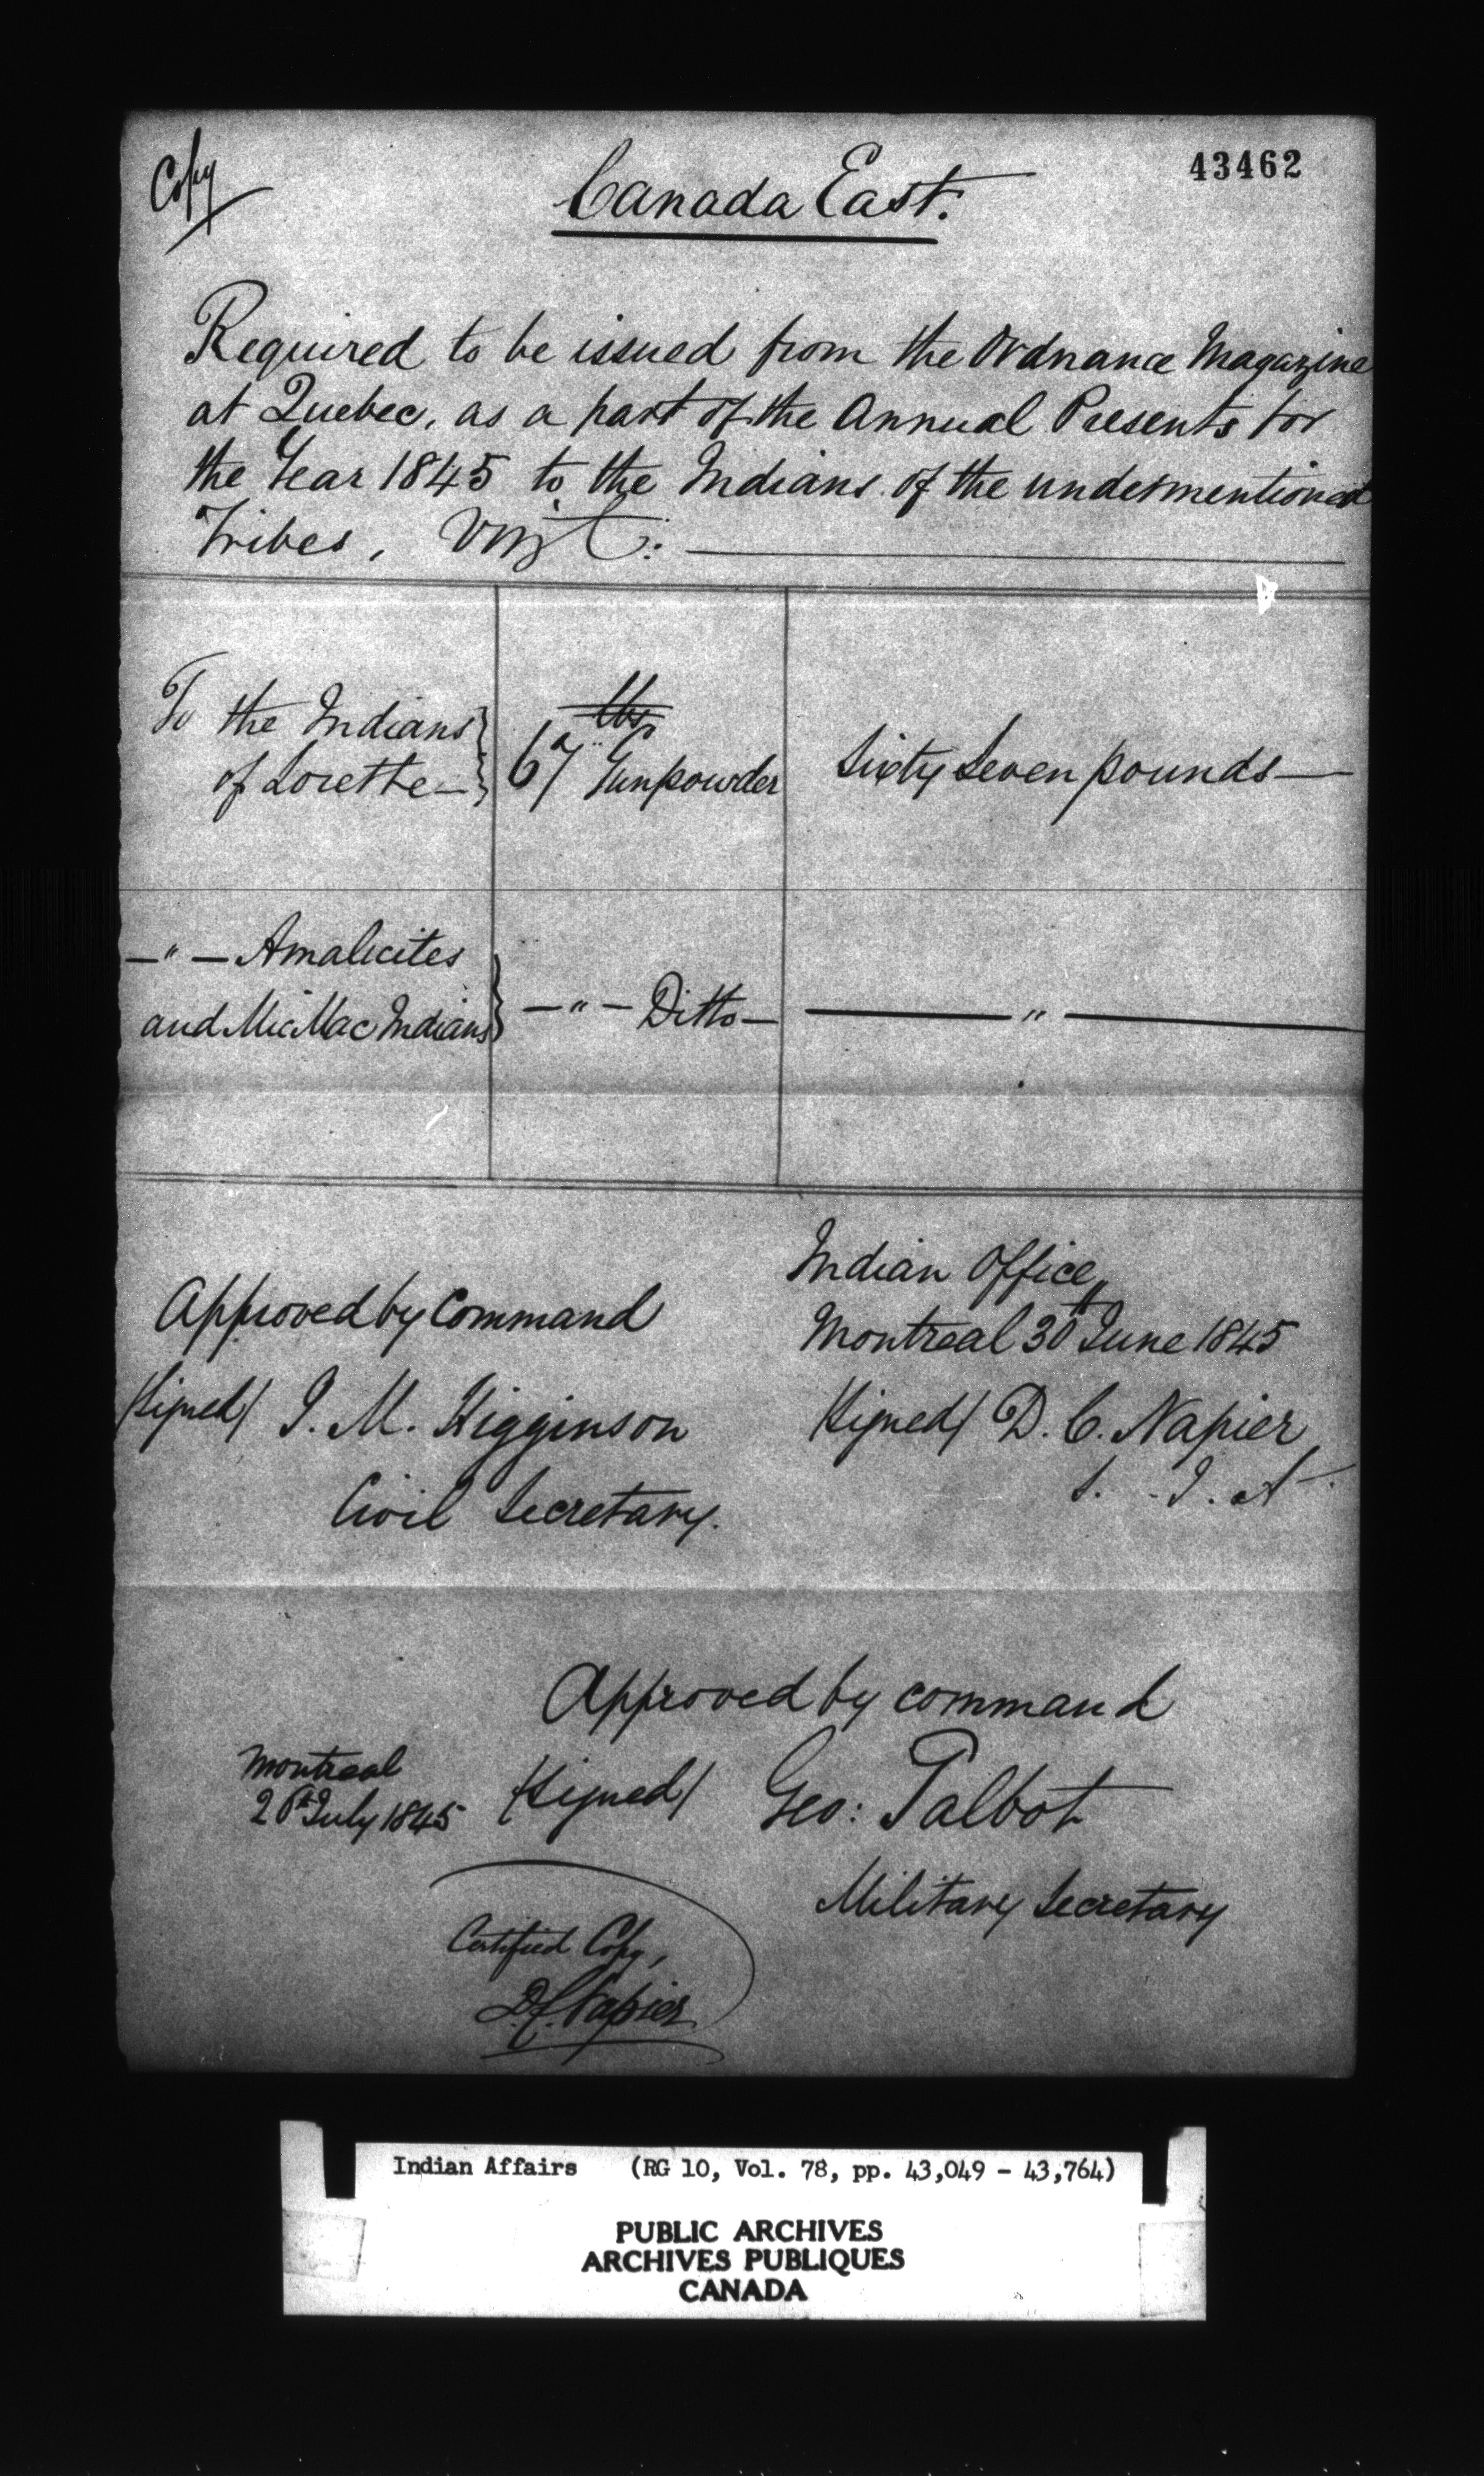 Copy
43462
Canada East.
Required to be issued from the Ordnance Magazine
at Quebec, as a part of the Annual Presents for
the Year 1845 to the Indians of the undermentioned
Tribes, Vizt:
lbs
To the Indians
of Lorette
67 Gunpowder
Sixty Seven pounds
—"— Amalicites
and MicMac Indians
—"— Ditto —
— " —
Indian Office,
Montreal 30th June 1845
Approved by Command
Signed/ J. M. Higginson
Civil Secretary.
Signed/ D. C. Napier,
S. I. A
Approved by command
Montreal
26th July 1845
(Signed) Geo: Talbot
Military Secretary
Certified Copy,
D.C. Napier
Indian Affairs (RG 10, Vol. 78, pp. 43,049 - 43,764)
PUBLIC ARCHIVES
ARCHIVES PUBLIQUES
CANADA